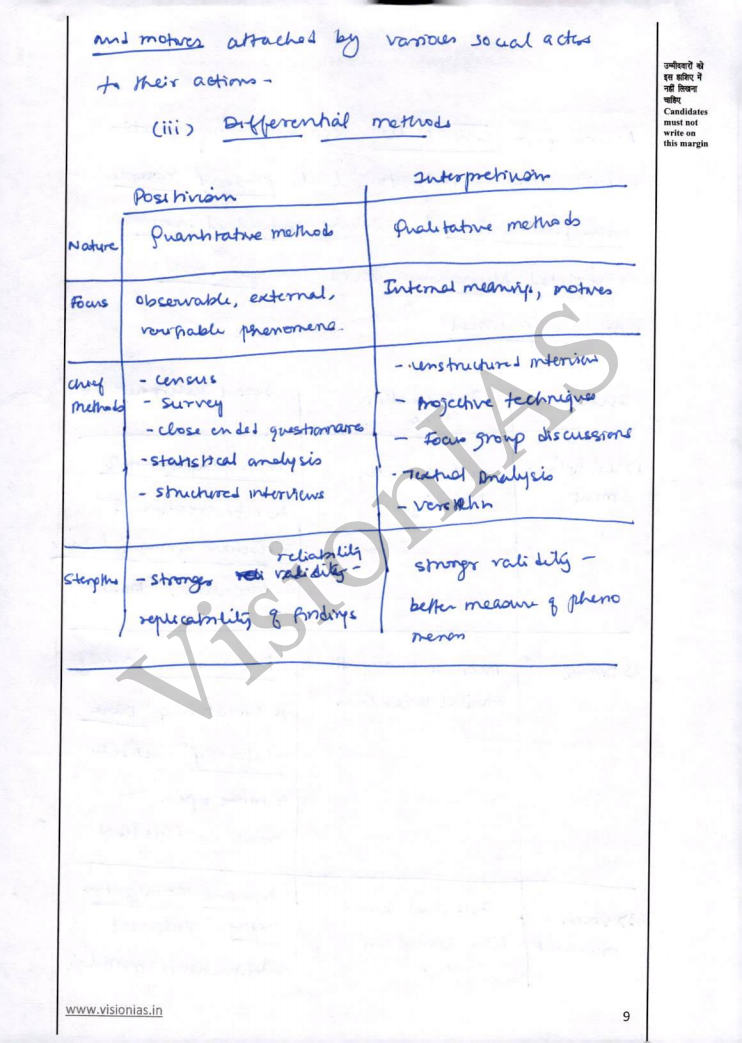 and motives attached by various social actors
to their actions -
(iii) Differential methods
Positivism
Interpretivism
Nature
Quantitative methods
Qualitative methods
Focus
observable, external,
verifiable phenomena.
Internal meanings, motives
chief
methods
- census
- survey
- close ended questionnaires
- statistical analysis
- structured interviews
- unstructured interview
- Projective techniques
- Focus group discussions
- Textual analysis
- Verstehn
Stengths
reliability
- stronger validity -
replicability of findings
stronger validity -
better measure of pheno
menon
उम्मीदवारों को
इस हाशिए में
नहीं लिखना
चाहिए
Candidates
must not
write on
this margin
VisionIAS
www.visionias.in
9